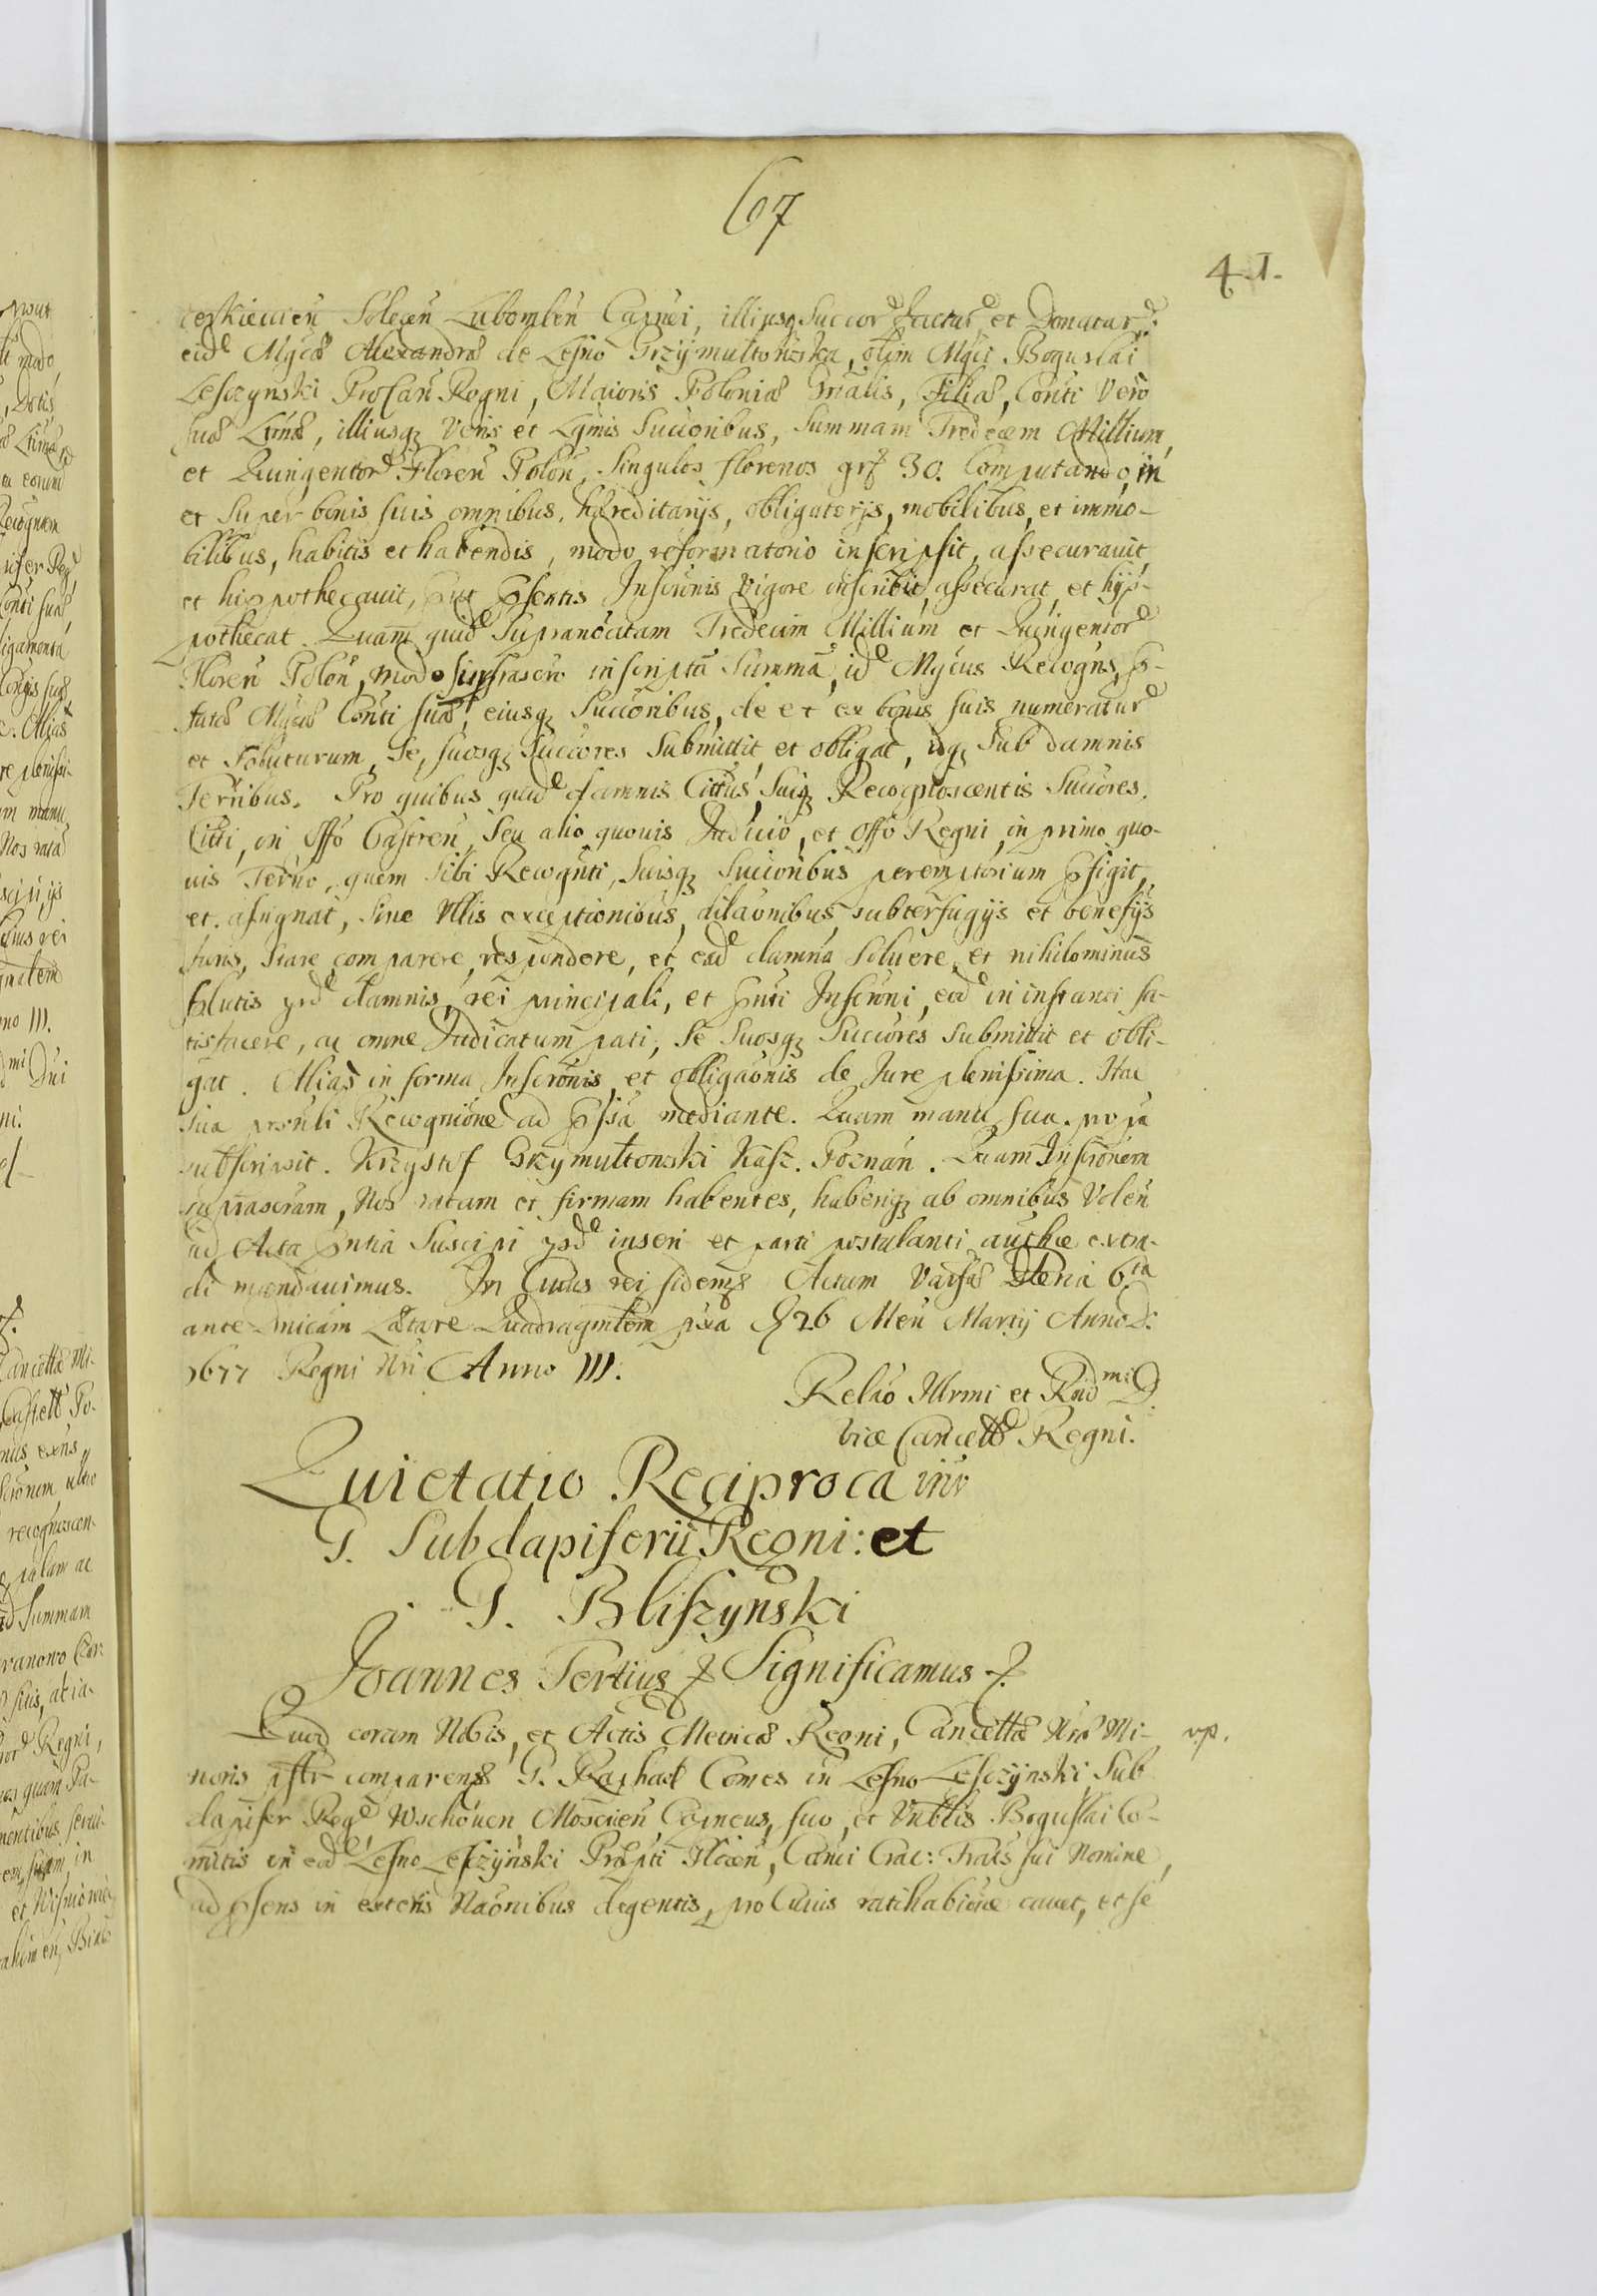 67
41.
ceskievien Solecen Lubomlen Capnei, illiusq Succor factar et Donatar.
eid Mgcæ Alexandræ de Lesno Grzymułtowska, olim Mgci Boguslai
Lesczynski ProCan Regni, Maioris Poloniæ Gnalis, Filiæ, Conti Vero
suæ Lrmæ, illiusq Veris et Lgmis Succoribus, Summam Tredecem Millium,
et Quingentor Floren Polon, Singulos florenos grs 30. Computando, in
et Super bonis suis omnibus, hæreditarijs, obligatorijs, mobilibus, et immo-
bilibus, habitis et habendis, modo reformatorio inscripsit, assecurauit,
et hippothecauit, put psentis Inscrionis Vigore inscribit, assecurat, et hyp-
pothecat. Quam quid Supranotatam Tredecim Millium et Quingentor
Floren Polon, modo suprascro inscripta Summa, id Mgcus Recogns, p-
fatæ Mgcæ Conti suæ, eiusq Succoribus, de et ex bonis suis numeratur
et Soluturum, Se, suosq Succores Submittit et obligat, idq Sub damnis
Terribus. Pro quibus quid damnis Cittus, Suiq Recognoscentis Succores.
Citti, in Offo Castren, Seu alio quouis Judicio, et Offo Regni, in primo quo-
uis Termo, quem Sibi Recognti, Suisq Succoribus peremptorium pfigit,
et assignat, Sine Vllis exceptionibus, dilaonibus, subterfugijs et benefijs
Juris, Stare, comparere, respondere, et ead damna Soluere, et nihilominus
Solutis prd damnis, rei principali, et pnti Inscrioni, eod in instanti sa-
tisfacere, ac omne Judicatum pati, Se Suosq Succores Submittit et obli-
gat. Alias in forma Inscrionis et obligaonis de Jure plenissima. Hac
Sua prsnli Recognione ad pssa mediante. Quam manu sua. propa
subscripsit. Krzysztof Grzymułtowski Kasz. Poznan. Quam Inscrionem
suprascram, Nos ratam et firmam habentes, haberiq ab omnibus Volen
ad Acta pntia Suscipi prd inseri et parti postulanti authce exten-
di mandauimus. In Cuius rei fidem Actum Varsæ Feria 6ta
ante Dnicam Lætare Quadragmlem pxa 26 Men Martij Anno D:
1677 Regni Nri Anno III.
Relao Illrmi et Rndmi D.
vice Cancell Regni.
Quietatio Reciproca inr
G. Subdapiferii Regni: et
G. Bliszynski
Joannes Tertius Significamus
Quod coram Nobis, et Actis Metricæ Regni, Cancellæ Næ Mi- vp.
noris pstr comparens G. Raphael Comes in Lesno Lesczynski Sub
dapifer Reg Wschouen Moscicen Capneus, suo, et Vnblis Boguslai Co-
mitis in eod Lesno Leszczynski Præpti Plocen, Canci Crac: Frais sui Nomine,
ad psens in exteris Naonibus degentis, pro Cuius ratihabione cauet, et se